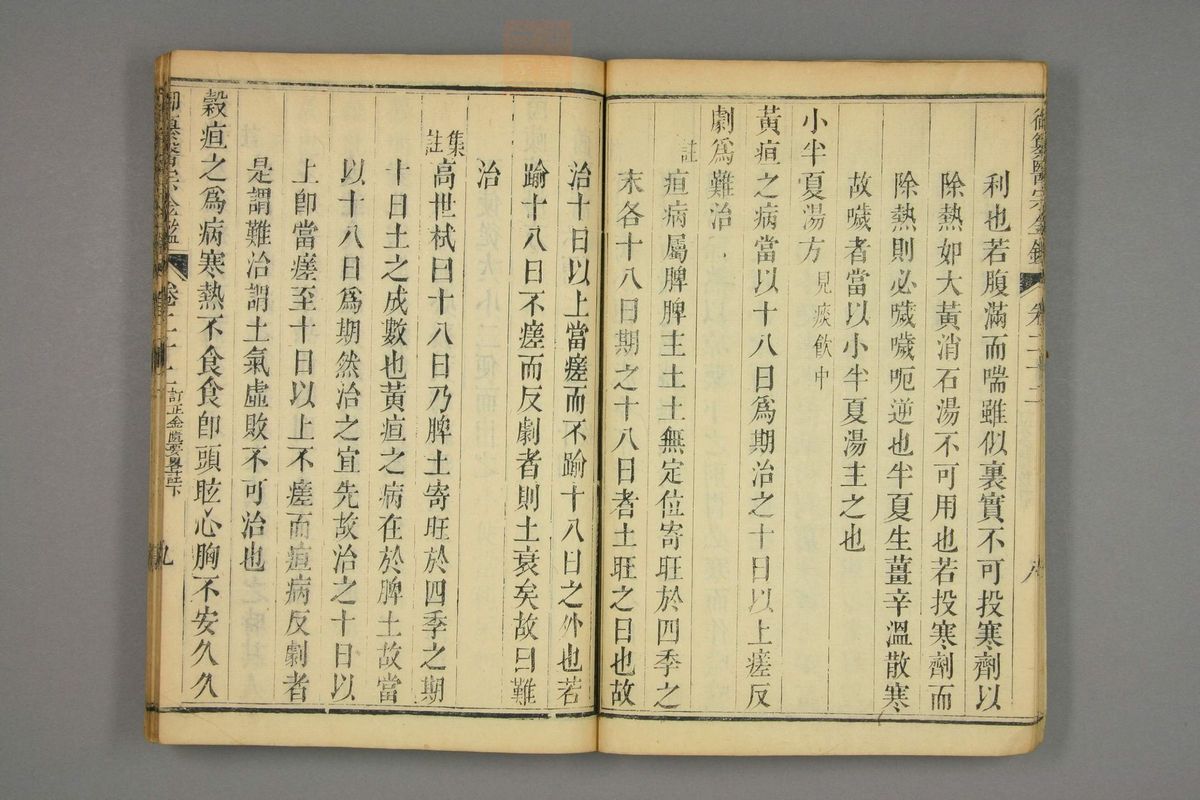 御纂醫宗金鑑 卷二十二 八
利也若腹滿而喘雖似裏實不可投寒劑以
除熱如大黃消石湯不可用也若投寒劑而
除熱則必噦噦呃逆也半夏生薑辛溫散寒
故噦者當以小半夏湯主之也
小半夏湯方 見痰飲中
黃疸之病當以十八日為期治之十日以上瘥反
劇為難治
註 疸病屬脾脾主土土無定位寄旺於四季之
末各十八日期之十八日者土旺之日也故
治十日以上當瘥而不踰十八日之外也若
踰十八日不瘥而反劇者則土衰矣故曰難
治
集註 高世栻曰十八日乃脾土寄旺於四季之期
十日土之成數也黃疸之病在於脾土故當
以十八日為期然治之宜先故治之十日以
上卽當瘥至十日以上不瘥而疸病反劇者
是謂難治謂土氣虛敗不可治也
穀疸之為病寒熱不食食卽頭眩心胸不安久久
御纂醫宗金鑑 卷二十二 訂正金匱要畧註下 九